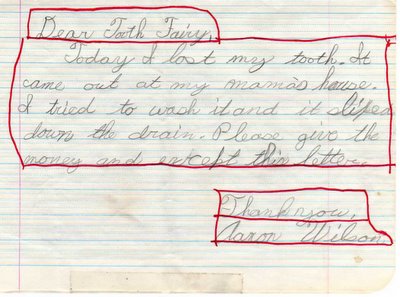 Dear Tooth Fairy,
Today I lost my tooth. It
came out at my mama's house.
I tried to wash it and it sliped
down the drain. Please give the
money and enxcept this letter.
Thank you,
Aaron Wilson.